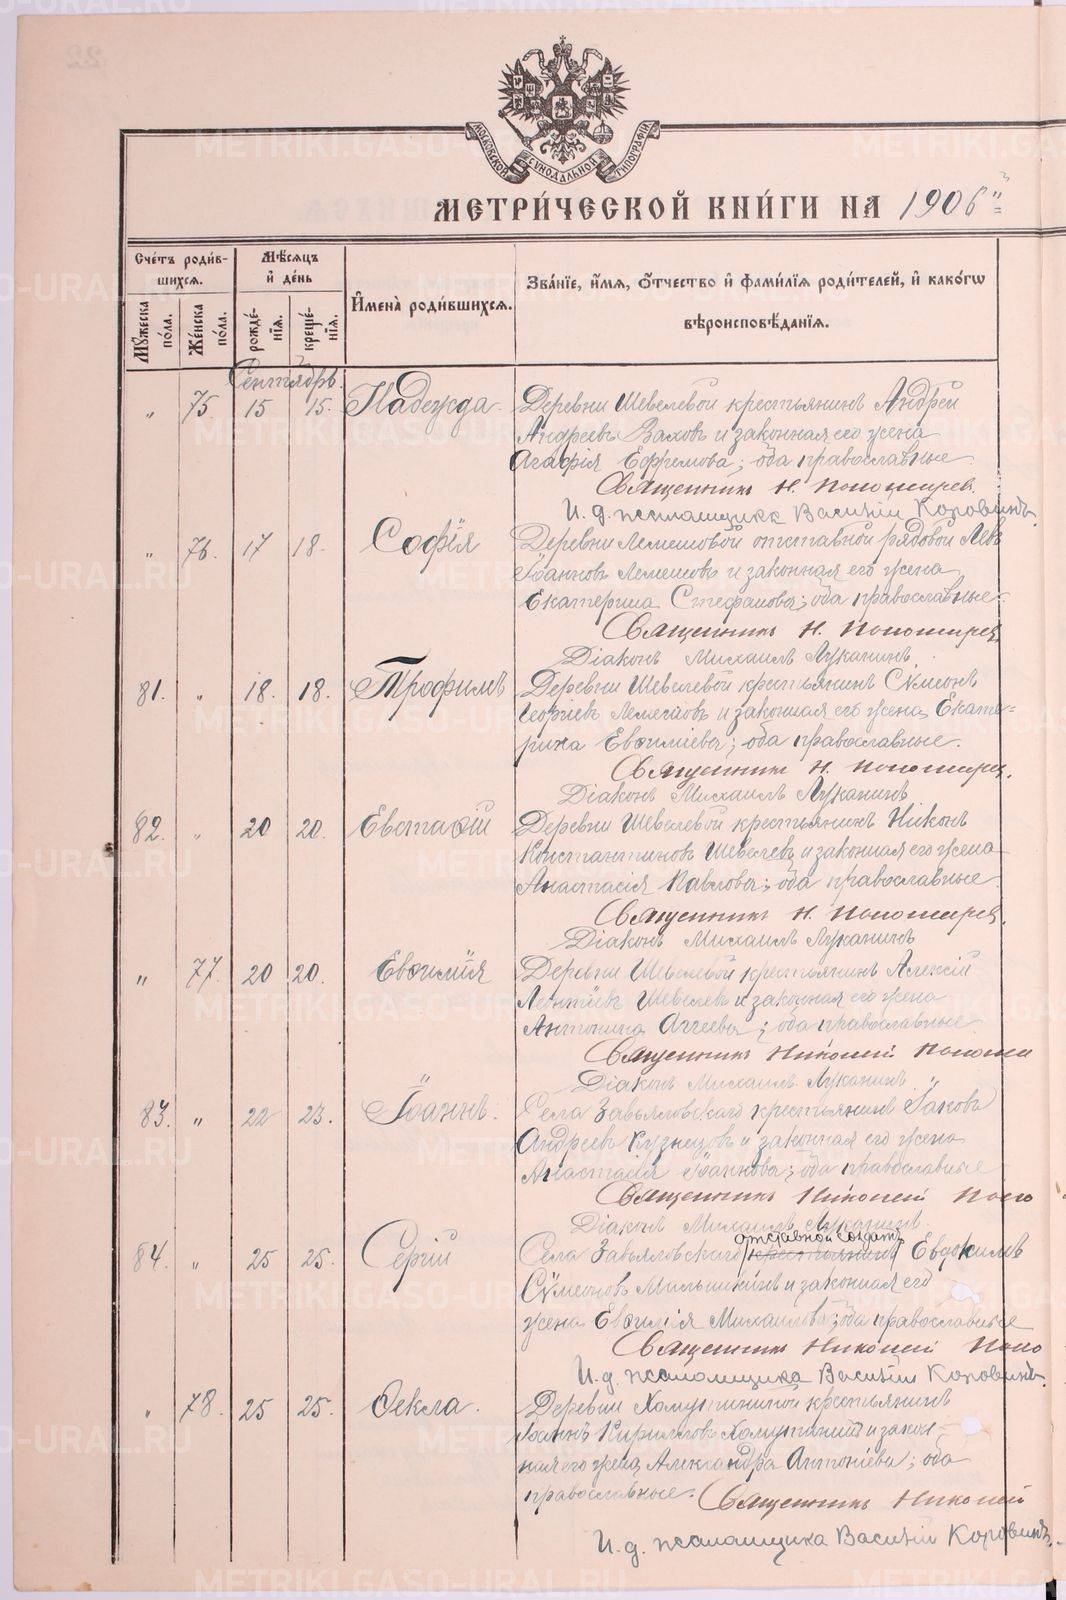 МОСКОВСКОЙ СѴНОДАЛЬНОЙ ТИПОГРАФІИ
МЕТРИ́ЧЕСКОЙ КНИ́ГИ НА 1906
Сче́тъ роди́в-
шихся.
Мѣ́сяцъ
и де́нь
Мꙋ́жеска по́ла.
Же́нска по́ла.
рожде́-нія.
креще́-нія.
Имена̀ роди́вшихся.
Зва́ніе, и́мя, ѻ҆́тчество и фами́лія роди́телей, и како́гѡ
вѣроисповѣ́данія.
Сентябрь.
„ 75. 15 15. Надежда. Деревни Шевелевой крестьянинъ Андрей
Андреевъ Ваховъ и законная его жена
Агафія Ефремова; оба православные
Священникъ Н. Пономарев.
И. д. псаломщика Василій Коровинъ.
„ 76. 17 18. Софія Деревни Лемешовой отставной рядовой Левъ
Іоанновъ Лемешовъ и законная его жена
Екатерина Стефанова; оба православные.
Священникъ Н. Пономарев
Діаконъ Михаилъ Луканинъ.
81. „ 18. 18. Трофимъ Деревни Шевелевой крестьянинъ Сѵмеонъ
Георгіевъ Лемешовъ и законная его жена Екате-
рина Евѳиміева; оба православные.
Священникъ Н. Пономарев.
Діаконъ Михаилъ Луканинъ
82. „ 20 20. Евстафій Деревни Шевелевой крестьянинъ Никонъ
Константиновъ Шевелевъ и законная его жена
Анастасія Павлова; оба православные.
Священникъ Н. Пономарев.
Діаконъ Михаилъ Луканинъ
„ 77. 20 20. Евѳимія Деревни Шевелевой крестьянинъ Алексій
Леонтіевъ Шевелевъ и законная его жена
Антонина Аггеева; оба православные
Священникъ Николай Понома
Діаконъ Михаилъ Луканинъ.
83. „ 22 23. Іоаннъ. Села Завьяловскаго крестьянинъ Іаковъ
Андреевъ Кузнецовъ и законная его жена
Анастасія Іоаннова; оба православные
Священникъ Николай Поно
Діаконъ Михаилъ Луканинъ.
отставной солдатъ
84. „ 25 25. Сергій Села Завьяловскаго крестьянинъ Евдокимъ
Сѵмеоновъ Мильшикинъ и законная его
жена Евѳимія Михаилова; оба православные
Священникъ Николай Поно
И. д. псаломщика Василій Коровинъ.
„ 78. 25 25. Ѳекла. Деревни Хомутининой крестьянинъ
Іоаннъ Кирилловъ Хомутинин и закон-
ная его жена Александра Антоніева; оба
православные. Священникъ Николай
И. д. псаломщика Василій Коровинъ.